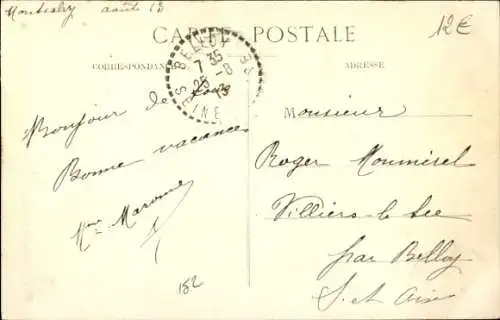 août 13
12€
CARTE POSTALE
CORRESPONDANCE
ADRESSE
BELLOY
7 35
25 -8
13
Bonjour de
Bonne vacances
Mme Maronne
Monsieur
Roger Moumirel
Villiers-le-Sec
par Belloy
S. et Oise
182